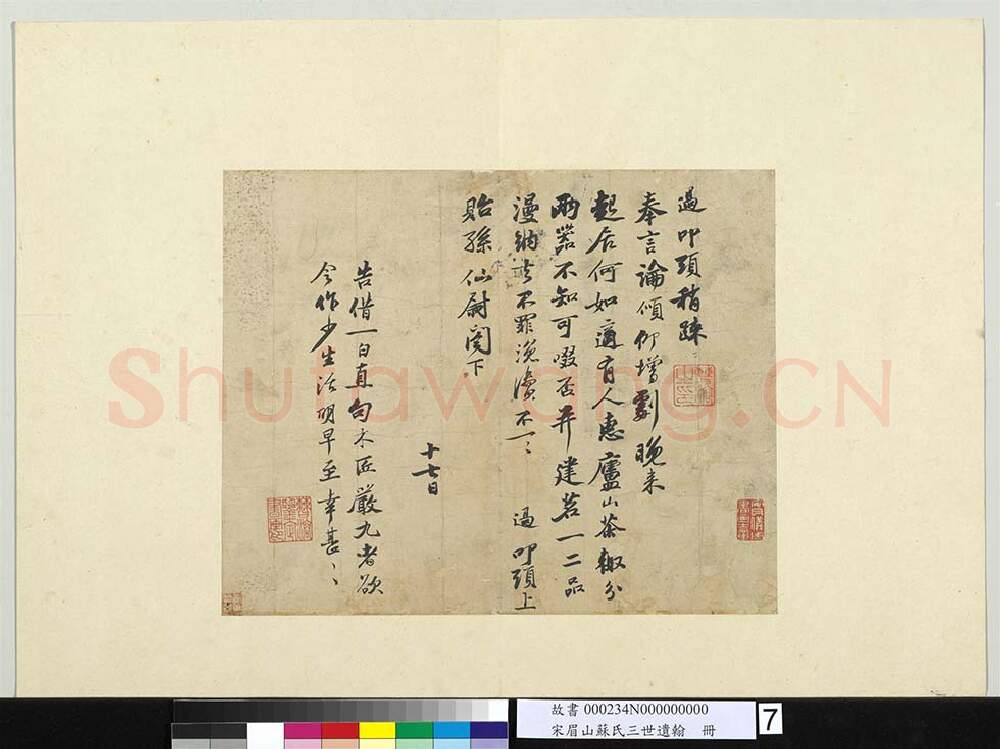 過叩頭稍疎
奉言論傾仰增劇晚來
起居何如適有人惠廬山茶輒分
兩器不知可啜否并建茗一二品
漫納去不罪浼瀆不一一
過叩頭上
貽孫仙尉閤下
十七日
告借一白直句木匠嚴九者欲
令作少生活明早至幸甚幸甚
Shufawang.CN
故書 000234N000000000
宋眉山蘇氏三世遺翰 冊
7